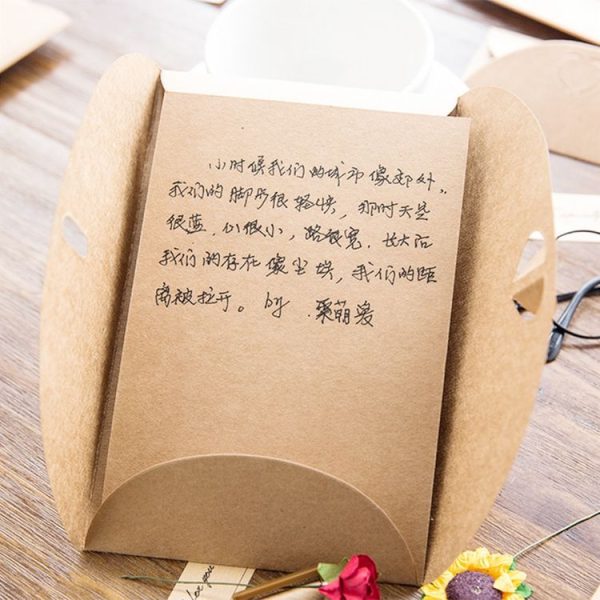 小时候我们的城市像郊外。
我们的脚步很轻快,那时天是
很蓝,心很小,路很宽。长大后
我们的存在像尘埃,我们的距
离被拉开。by.栗萌爱
love you